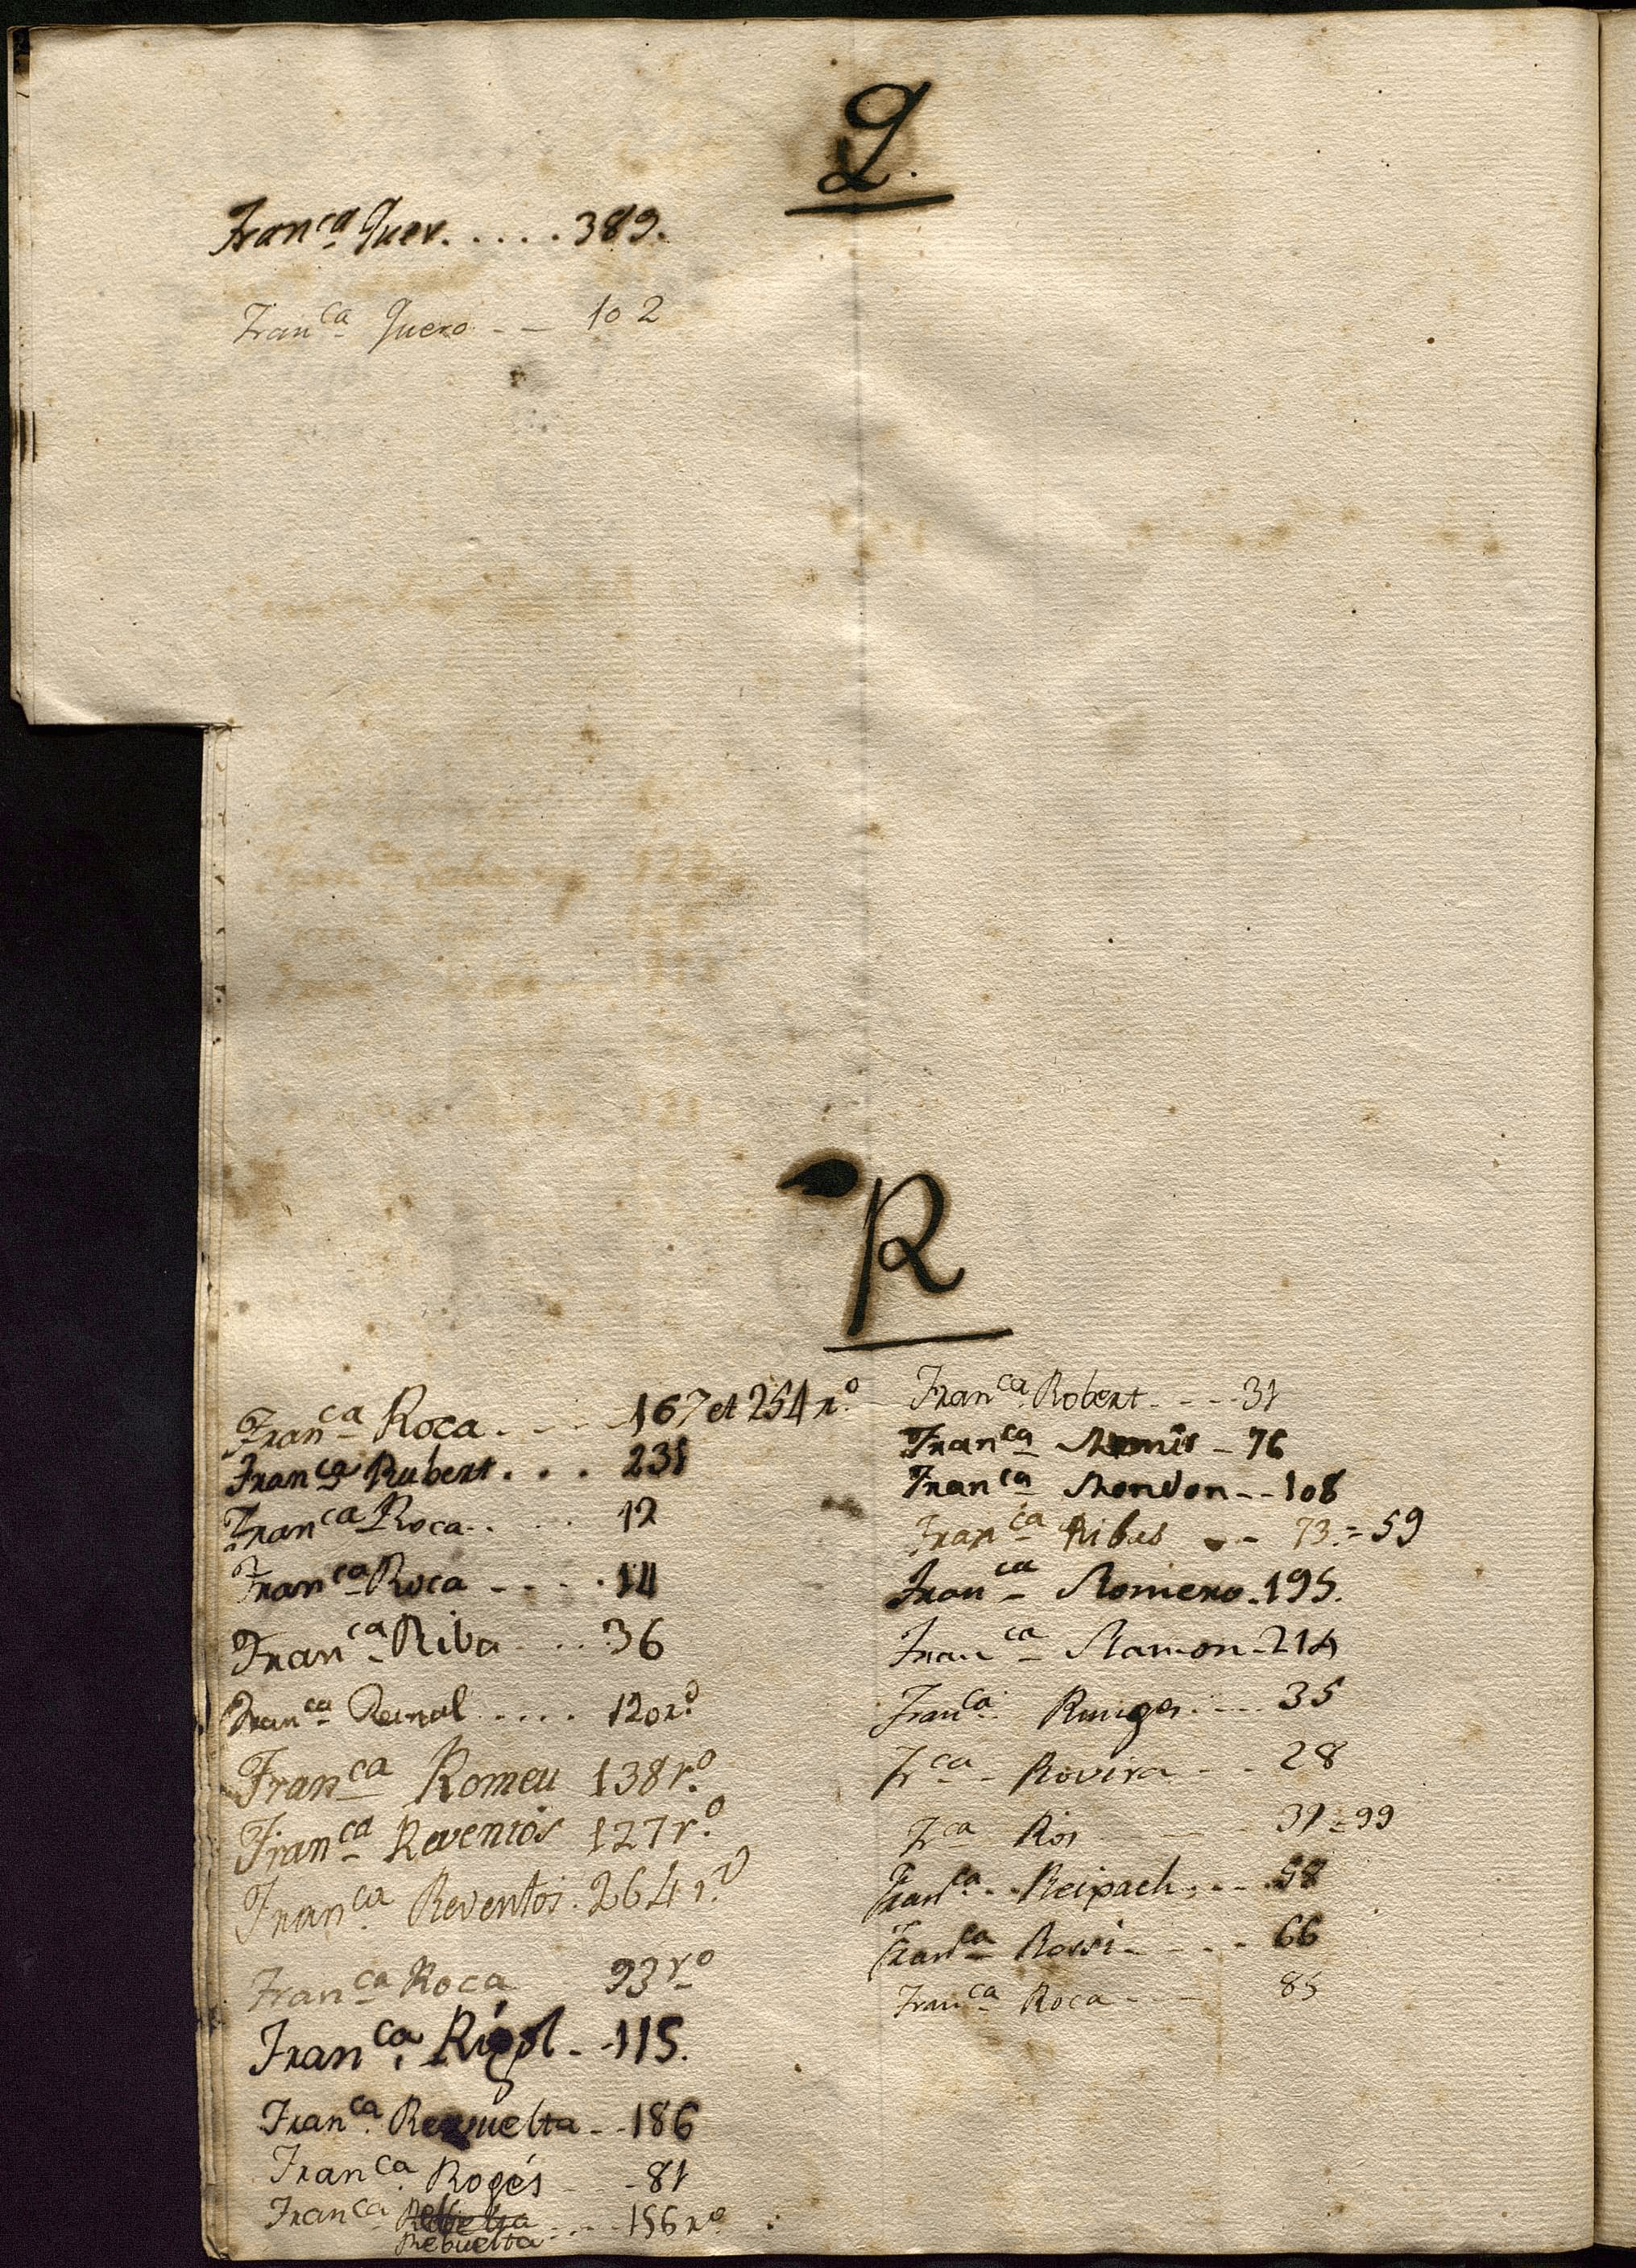 Q.
Fran^ca Quer. . . . . 389.
Fran^ca Quero - - 102
R
Fran^ca Roca. - - - 167 et 254 r.º
Fran^ca Rubert. . . 231
Fran^ca Roca. . . . 12
Fran^ca Roca - - - . 14
Fran^ca Riba . . . 36
Fran^ca . . . . 120 r.º
Fran^ca Romeu 138 r.º
Fran^ca Reventós 127 r.º
Fran^ca Reventós. 264 r.º
Fran^ca Roca 93 rº
Fran^ca. Rigol - - 115.
Fran^ca. Requelta - - 186
Fran^ca. Rogés - - 81
Fran^ca - - - 156 rº
Rebuelta
Fran^ca Robert. - - - 31
Fran^ca - 76
Fran^ca Rondon - - 108
Fran^ca Ribas - - 73. = 59
Fran^ca Romero. 195.
Fran^ca Ramon - 214
Fran^ca. . - - 35
Fr^ca - Rovira - - . 28
Fr^ca Ros - - 31 = 99
Fran^ca. . Reipach. - - 58
Fran^ca Rossi - - - 66
Fran^ca Roca - - - 85